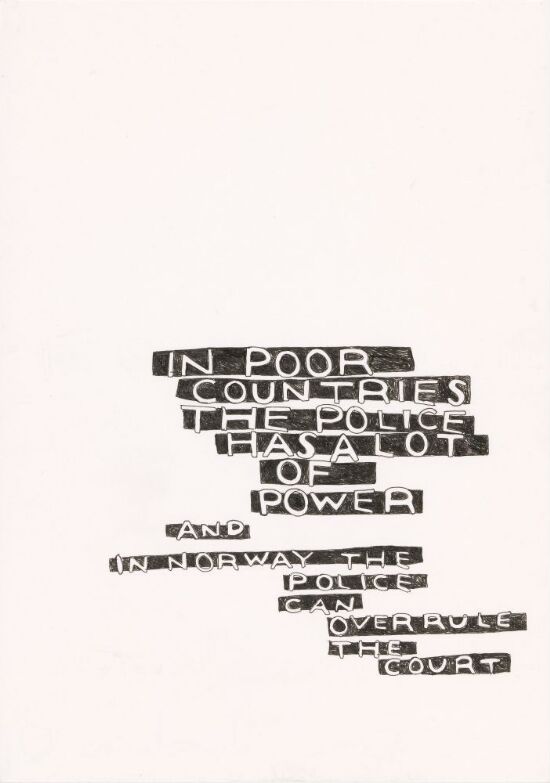 IN POOR
COUNTRIES
THE POLICE
HAS A LOT
OF
POWER
AND
IN NORWAY THE
POLICE
CAN
OVERRULE
THE
COURT